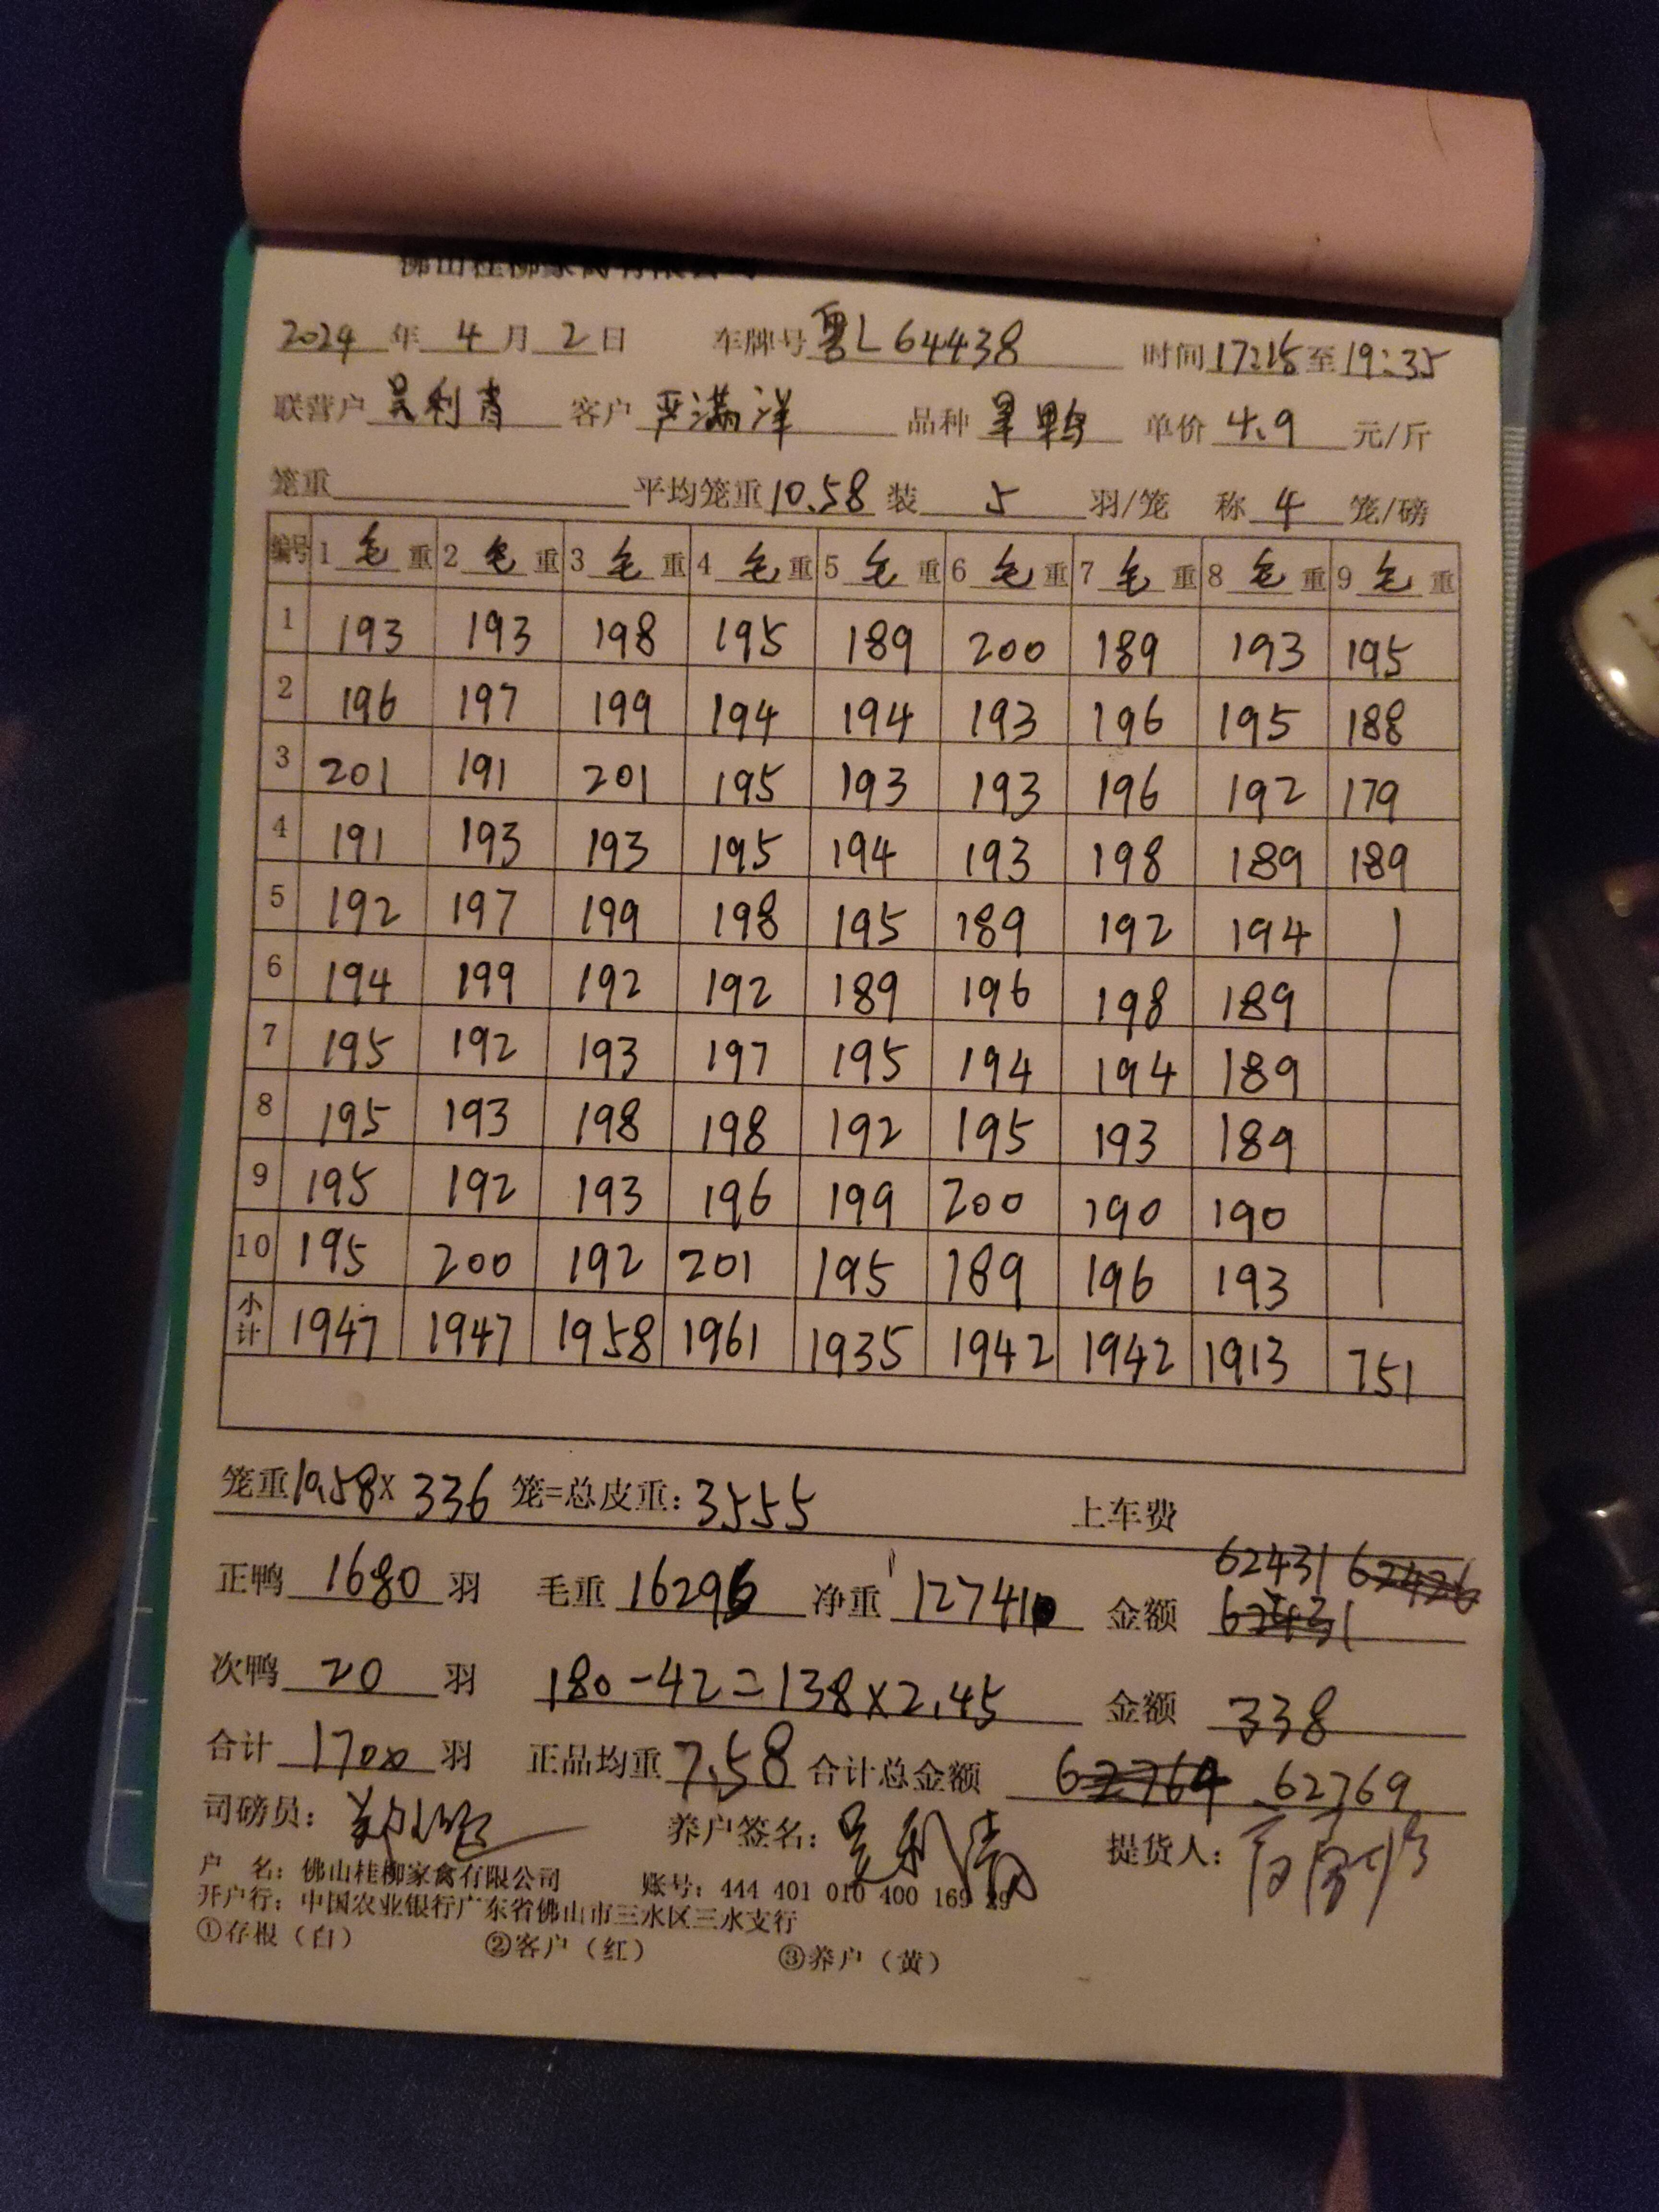 佛山桂柳家禽有限公司
2024年4月2日 车牌号 粤L64438 时间 17:15至19:35
联营户 吴利青 客户 严满洋 品种 旱鸭 单价 4.9 元/斤
笼重 平均笼重 10.58 装 5 羽/笼 称 4 笼/磅
编号 1 毛 重 2 毛 重 3 毛 重 4 毛 重 5 毛 重 6 毛 重 7 毛 重 8 毛 重 9 毛 重
1 193 193 198 195 189 200 189 193 195
2 196 197 199 194 194 193 196 195 188
3 201 191 201 195 193 193 196 192 179
4 191 193 193 195 194 193 198 189 189
5 192 197 199 198 195 189 192 194
6 194 199 192 192 189 196 198 189
7 195 192 193 197 195 194 194 189
8 195 193 198 198 192 195 193 189
9 195 192 193 196 199 200 190 190
10 195 200 192 201 195 189 196 193
小计 1947 1947 1958 1961 1935 1942 1942 1913 751
笼重 10.58 × 336 笼=总皮重: 3555 上车费
62431 62426
正鸭 1680 羽 毛重 16296 净重 12741 金额 62431
次鸭 20 羽 180-42=138×2.45 金额 338
合计 1700 羽 正品均重 7.58 合计总金额 62764 62769
司磅员: 养户签名: 吴利青 提货人:
户 名: 佛山桂柳家禽有限公司 账号: 444 401 010 400 169 29
开户行: 中国农业银行广东省佛山市三水区三水支行
①存根（白） ②客户（红） ③养户（黄）